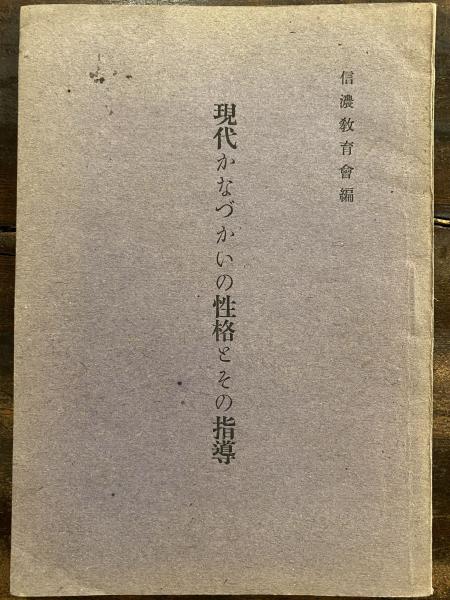 信濃教育會編
現代かなづかいの性格とその指導